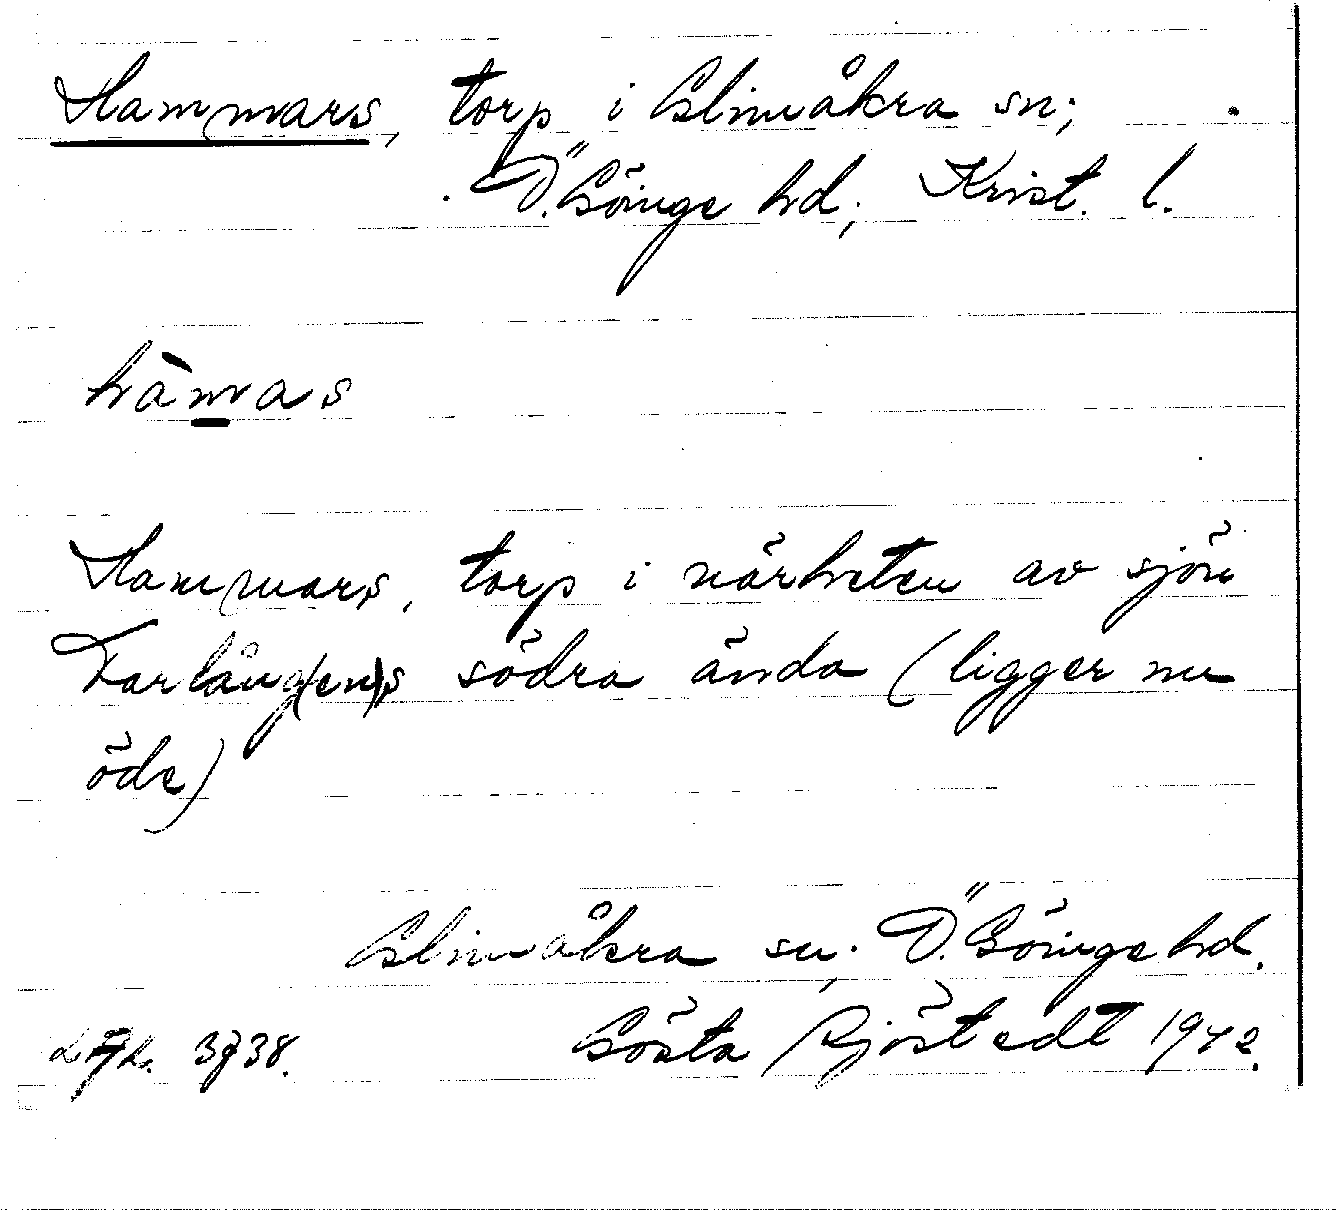 Hammars, torp i Glimåkra sn;
Ö. Göinge hd; Krist. l.
hàmas
Hammars, torp i närheten av sjön
Tarlång(en)s södra ända (ligger nu
öde)
Glimåkra sn; Ö. Göinge hd.
Gösta Sjöstedt 1942.
3738.